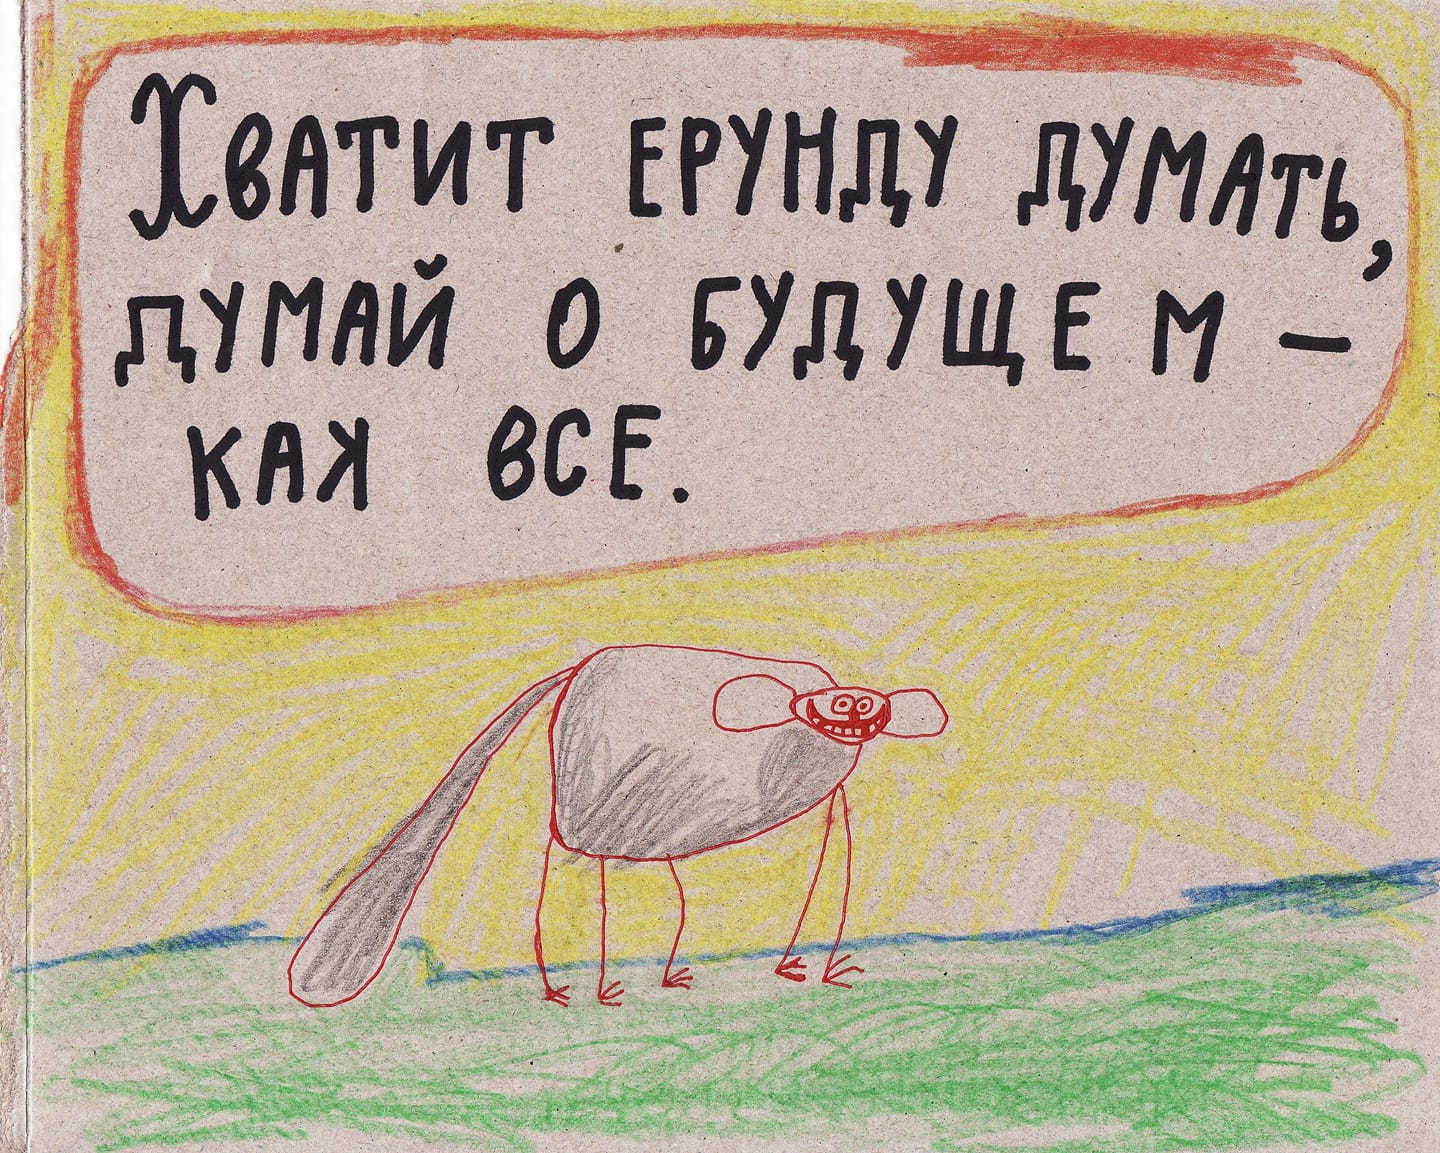 Хватит ерунду думать,
думай о будущем –
как все.